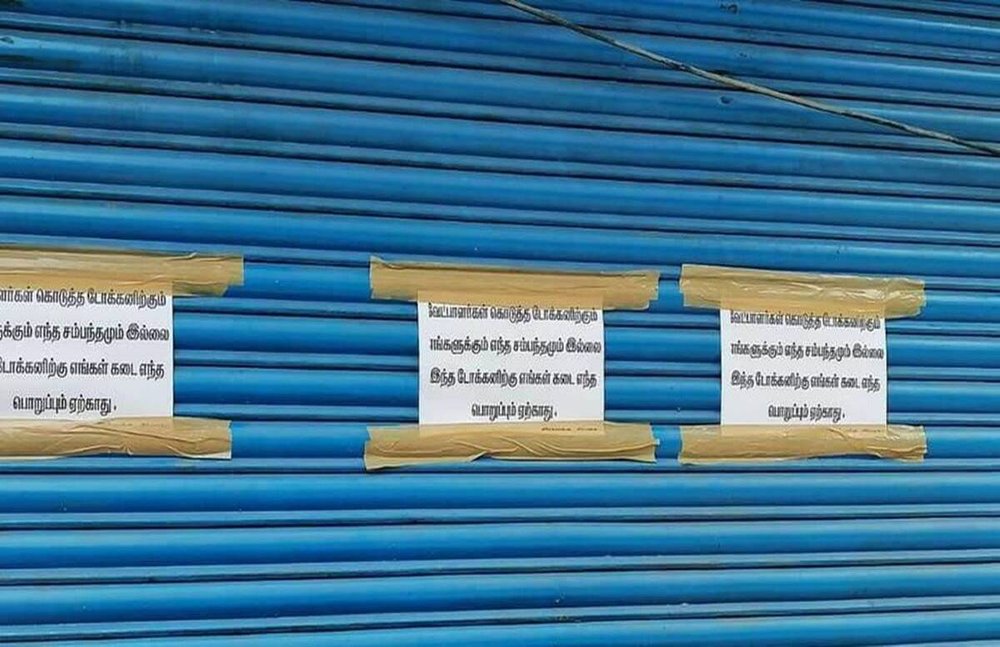 ளர்கள் கொடுத்த டோக்கனிற்கும்
க்கும் எந்த சம்பந்தமும் இல்லை
டோக்கனிற்கு எங்கள் கடை எந்த
பொறுப்பும் ஏற்காது.
வேட்பாளர்கள் கொடுத்த டோக்கனிற்கும்
ங்களுக்கும் எந்த சம்பந்தமும் இல்லை
இந்த டோக்கனிற்கு எங்கள் கடை எந்த
பொறுப்பும் ஏற்காது.
வேட்பாளர்கள் கொடுத்த டோக்கனிற்கும்
ங்களுக்கும் எந்த சம்பந்தமும் இல்லை
இந்த டோக்கனிற்கு எங்கள் கடை எந்த
பொறுப்பும் ஏற்காது.